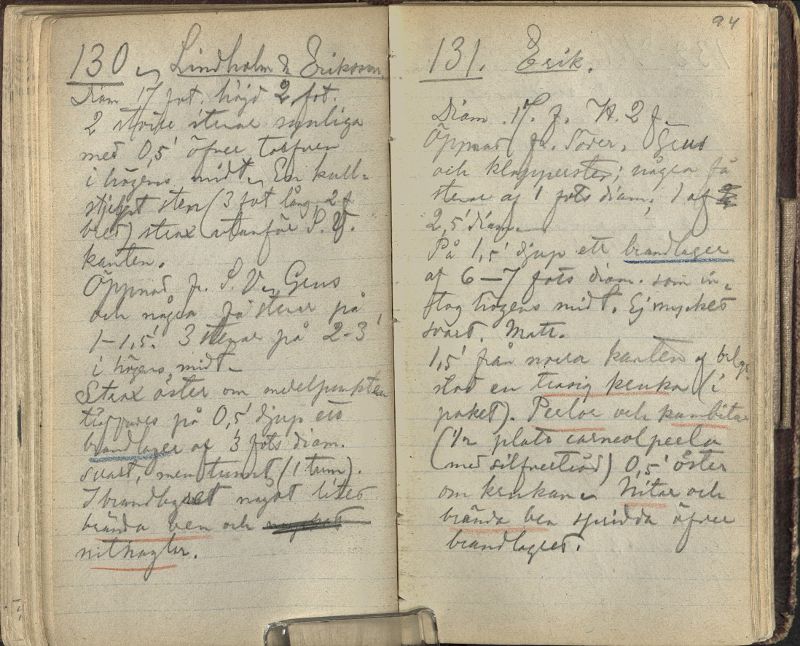 130 Lindholm & Eriksson
Diam 17 fot. höjd 2 fot.
2 större stenar synliga
med 0,5' öfver torfven
i högens midt. En kull-
stjelpt sten (3 fot lång 2 f
bred) strax utanför S.V.
kanten.
Öppnad fr. S.V. Grus
och några få stenar på
1-1,5'. 3 stenar på 2-3'
i högens midt.
Strax öster om medelpunkten
täffades på 0,5' djup ett
brandlager af 3 fots diam.
svart, men tunt (1 tum).
I brandlagret något litet
brända ben och
nithaglr.
94
131. Erik.
Diam. 17. f. H. 2 f.
Öppnad fr. Söder. Grus
och klappersten; några få
stenar af 1 fots diam, 1 af
2,5' diam.
På 1,5' djup ett brandlager
af 6-7 fots diam. som in-
tog högens midt. Ej mycket
svart. Matr.
1,5' från norra kanten af brlgr
stod en trasig kruka (i
paket). Perlor och kambitar
(1/2 platt carneolperla
(med silfvertråd) 0,5' öster
om krukan. Nitar och
brända ben spridda öfver
brandlagret.